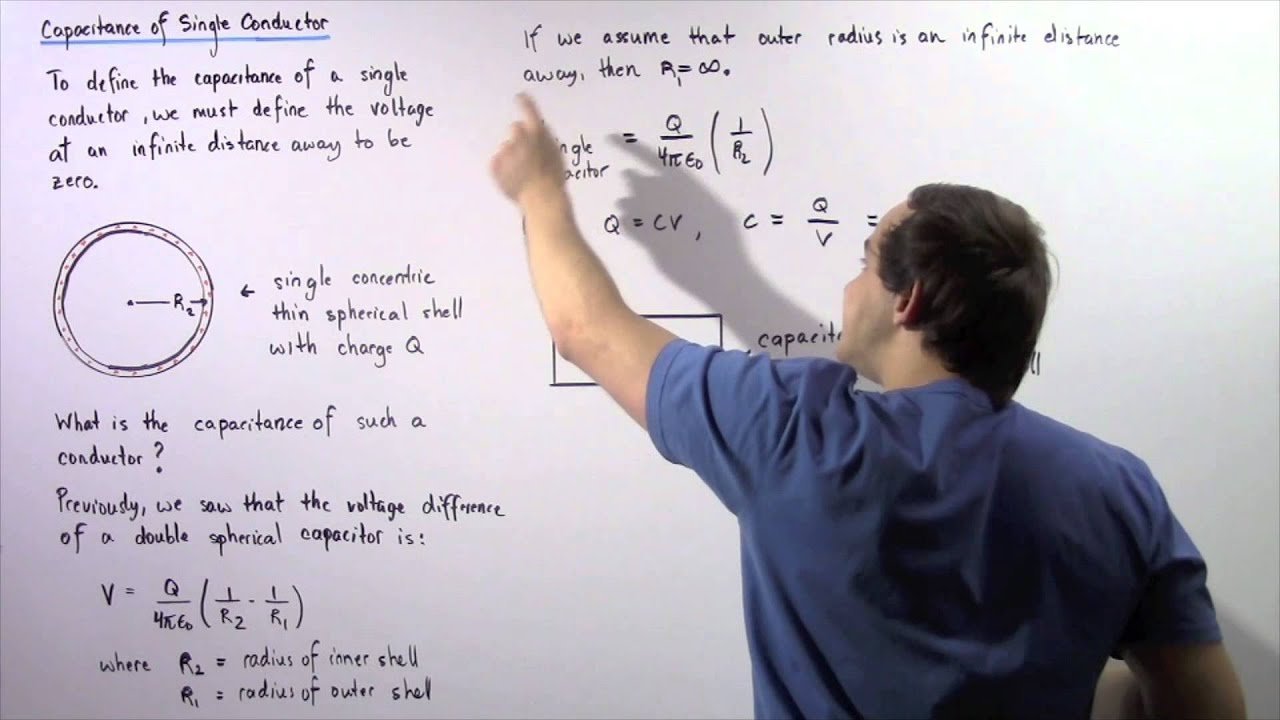 Capacitance of Single Conductor
To define the capacitance of a single
conductor, we must define the voltage
at an infinite distance away to be
zero.
R₂
← single concentric
thin spherical shell
with charge Q
What is the capacitance of such a
conductor?
Previously, we saw that the voltage difference
of a double spherical capacitor is:
V = Q/4πε₀ (1/R₂ - 1/R₁)
where R₂ = radius of inner shell
R₁ = radius of outer shell
If we assume that outer radius is an infinite distance
away, then R₁ = ∞.
= Q/4πε₀ (1/R₂)
Q = CV, C = Q/V =